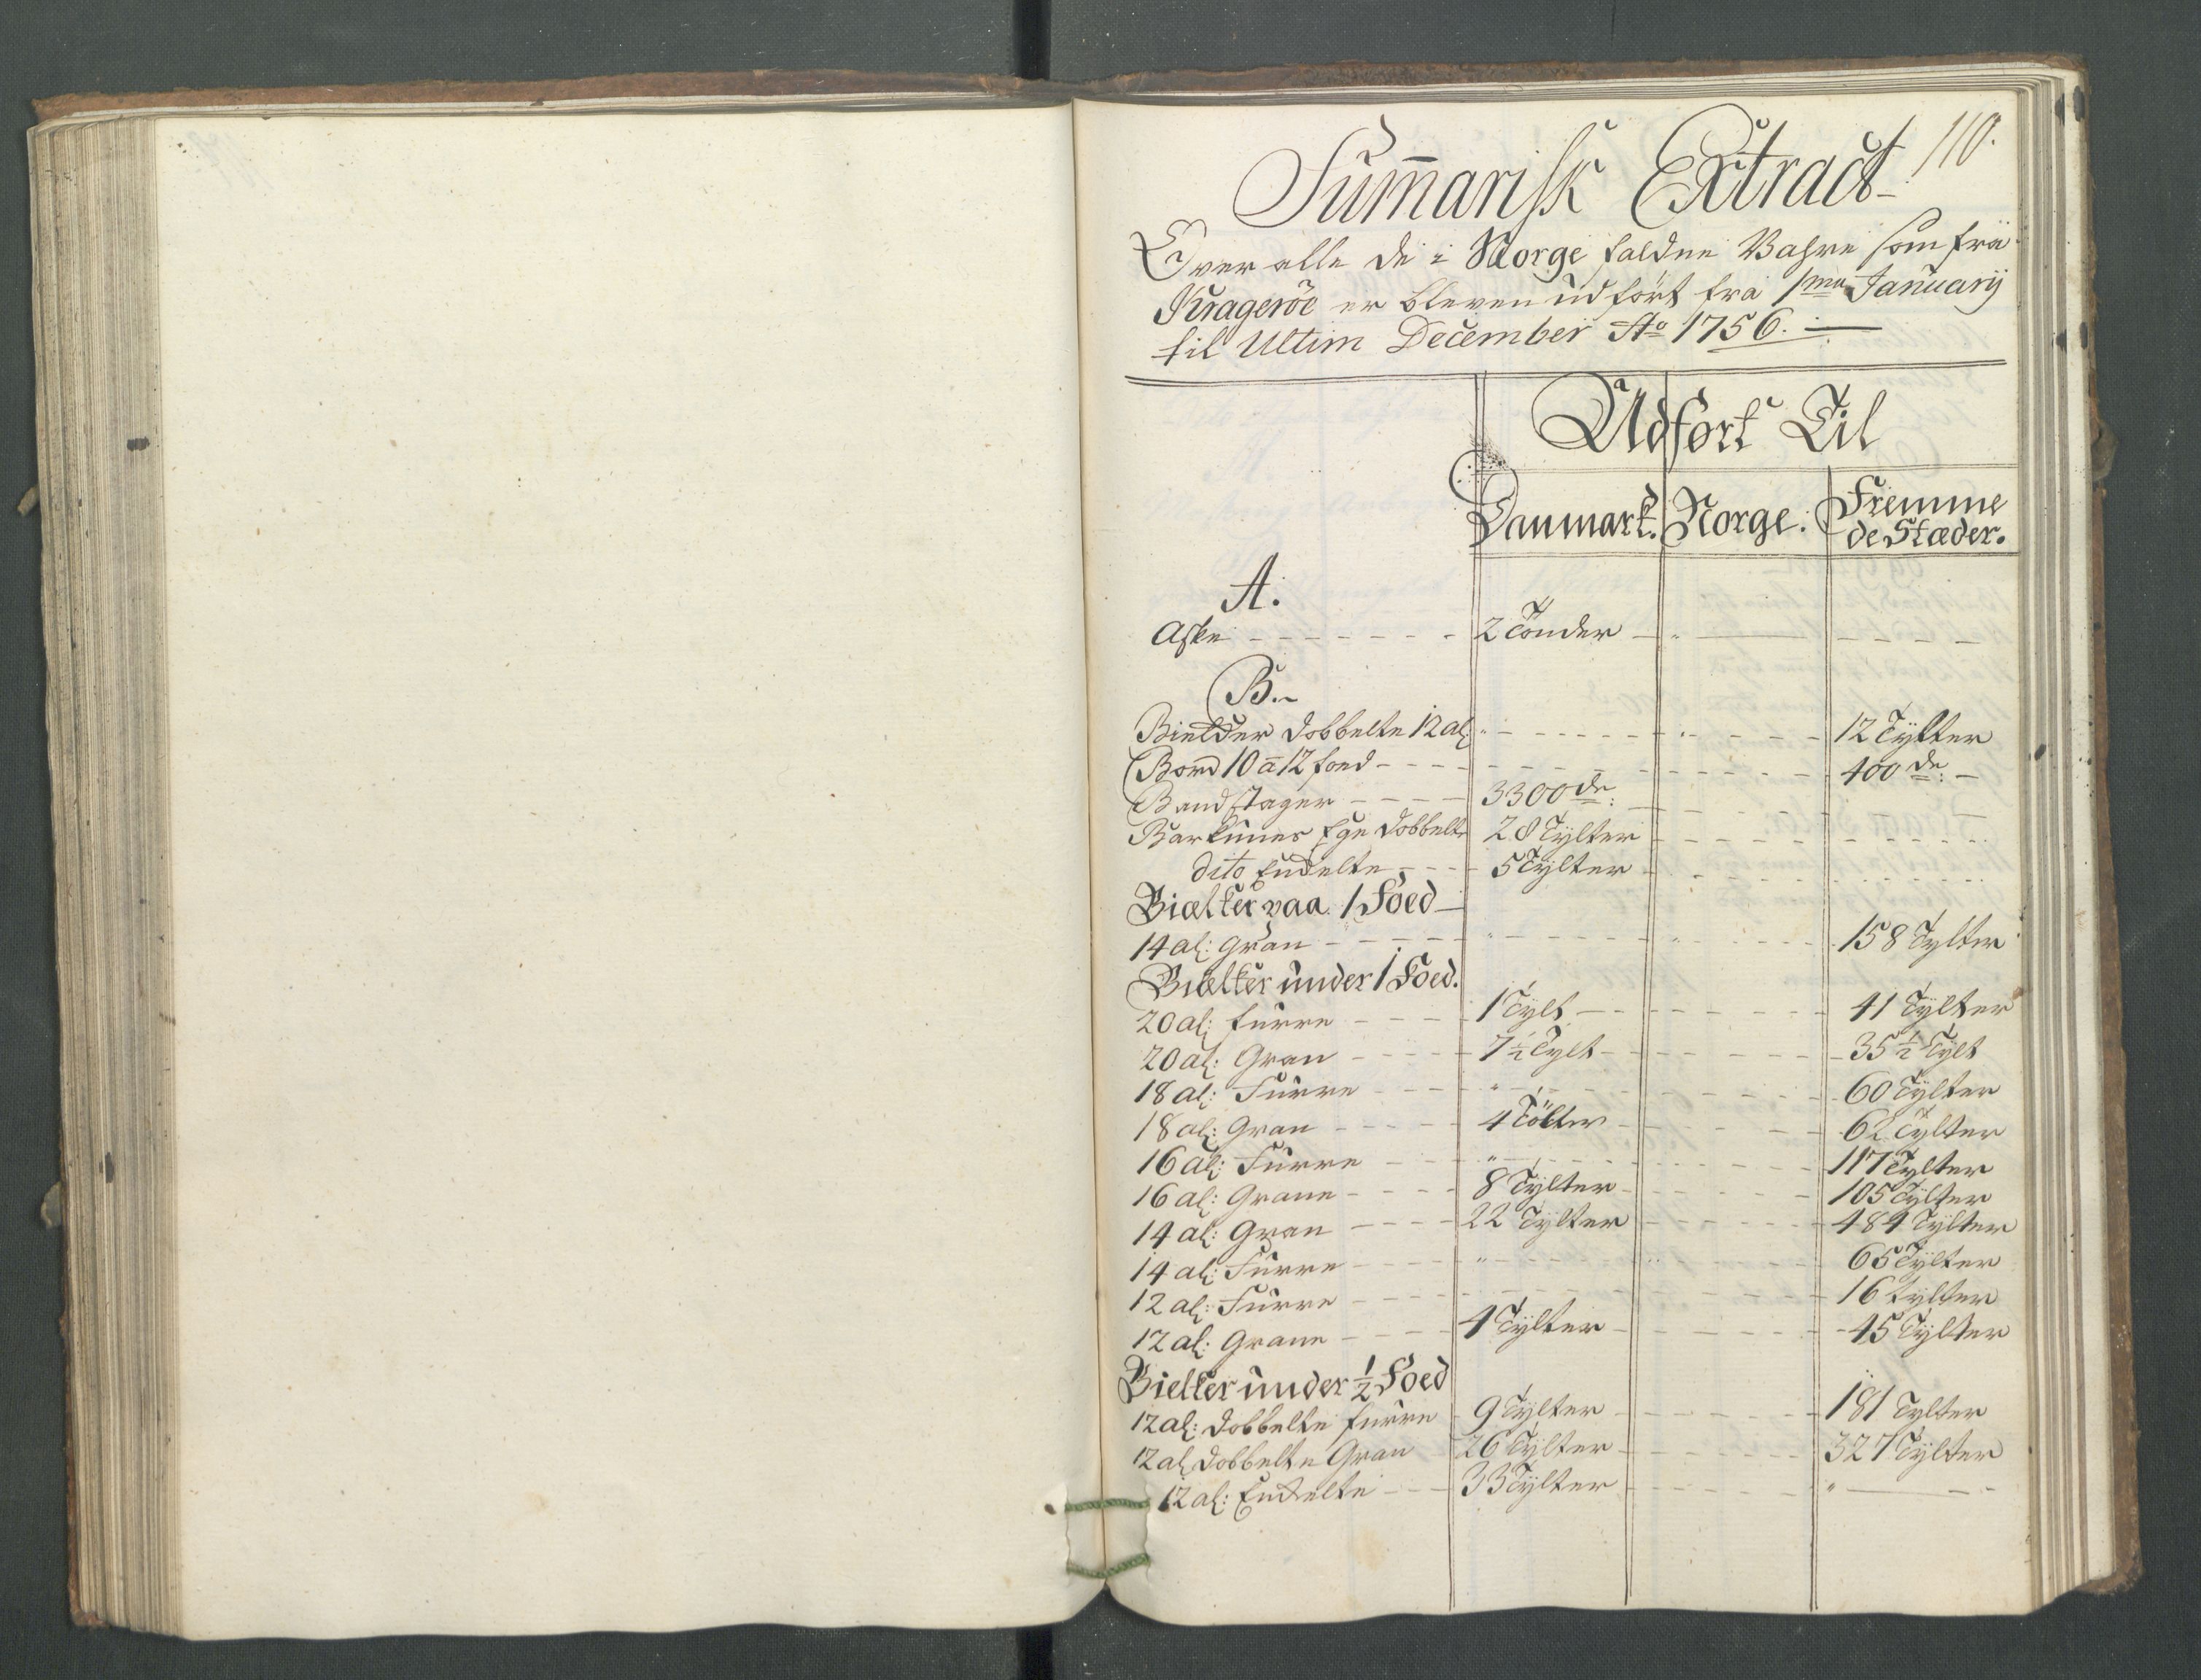 110.
Sum̄arisk Extract
Over alle de i Norge faldne Vahre som fra
Krageröe er bleven udført fra 1ma Januarij
til Ultim December Ao 1756.
Udført Til
Danmark. Norge. Fremme
de Stæder.
A.
Aske - - - 2 Tönder - - -
B.
Bielker dobbelte 12 al: " - - - " - - - 12 Tylter
Bord 10 a 12 foed - - - 400 de: -
Bandstager - - - 3300 de: - - -
Barkuner Ege dobbelte 28 Tylter - - -
dito Enckelte - - - 5 Tylter - - -
Bielker paa 1 Foed
14 al: gran - - - " - - - " - - - 158 Tylter
Bielker under 1 Foed.
20 al: furre - - - 1 Tylt - - - 41 Tylter
20 al: Gran - - - 7 1/2 Tylt - - - 35 1/2 Tylt
18 al: Furre - - - " - - - 60 Tylter
18 al: Gran - - - 4 Tölter - - - 62 Tylter
16 al: Furre - - - " - - - 117 Tylter
16 al: Grann - - - 8 Tylter - - - 105 Tylter
14 al: Gran - - - 22 Tylter - - - 484 Tylter
14 al: Furre - - - " - - - " - - - 65 Tylter
12 al: Furre - - - 16 tylter
12 al: Grann - - - 4 Tylter - - - 45 Tylter
Bielker under 1/2 Foed
12 al: dobbelte furre 9 Tylter - - - 181 Tylter
12 al dobbelte Gran 26 Tylter - - - 327 Tylter
12 al: Enckelte - - - 33 Tylter - - - " - - -